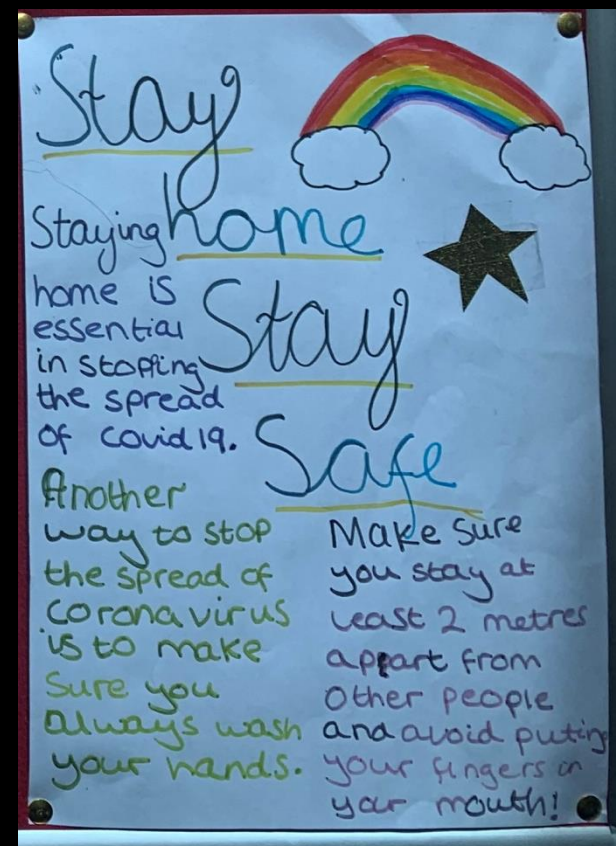 Stay
home
Stay
Safe
Staying
home is
essential
in stopping
the spread
of covid19.
Another
way to stop
the spread of
coronavirus
is to make
sure you
always wash
your hands.
Make sure
you stay at
least 2 metres
appart from
other people
and avoid puting
your fingers in
your mouth!